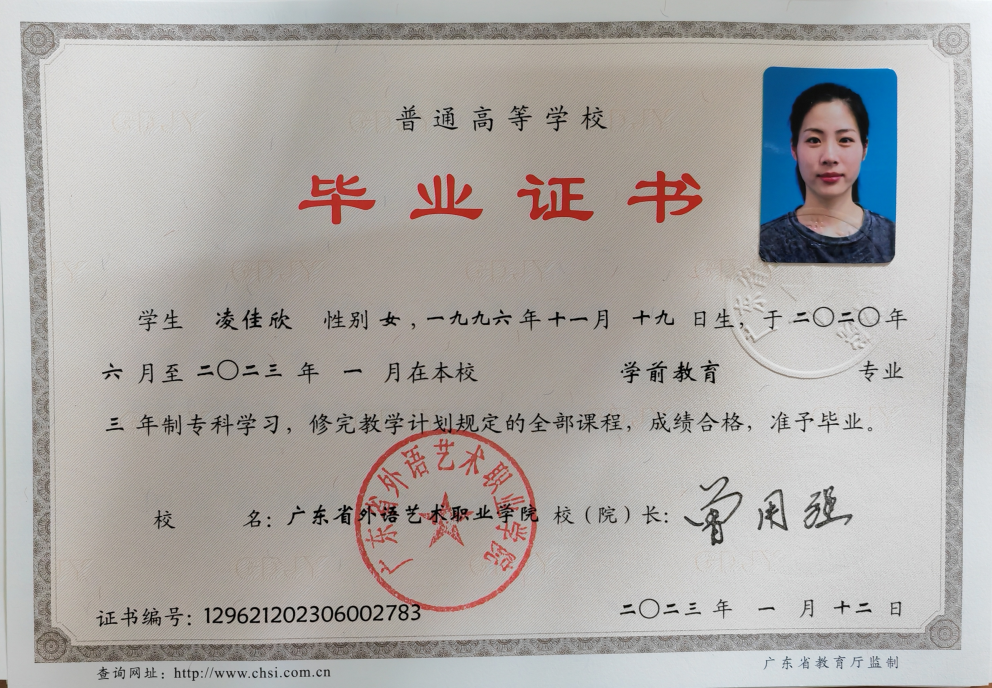 普通高等学校
毕业证书
学生 凌佳欣 性别 女，一九九六年十一月 十九 日生，于二〇二〇年
六 月至 二〇二三 年 一 月在本校 学前教育 专业
三 年制专科学习，修完教学计划规定的全部课程，成绩合格，准予毕业。
广东省外语艺术职业学院
校 名：广东省外语艺术职业学院 校（院）长：曾用强
证书编号：129621202306002783
二〇二三 年 一 月 十二 日
查询网址：http://www.chsi.com.cn
广东省教育厅监制